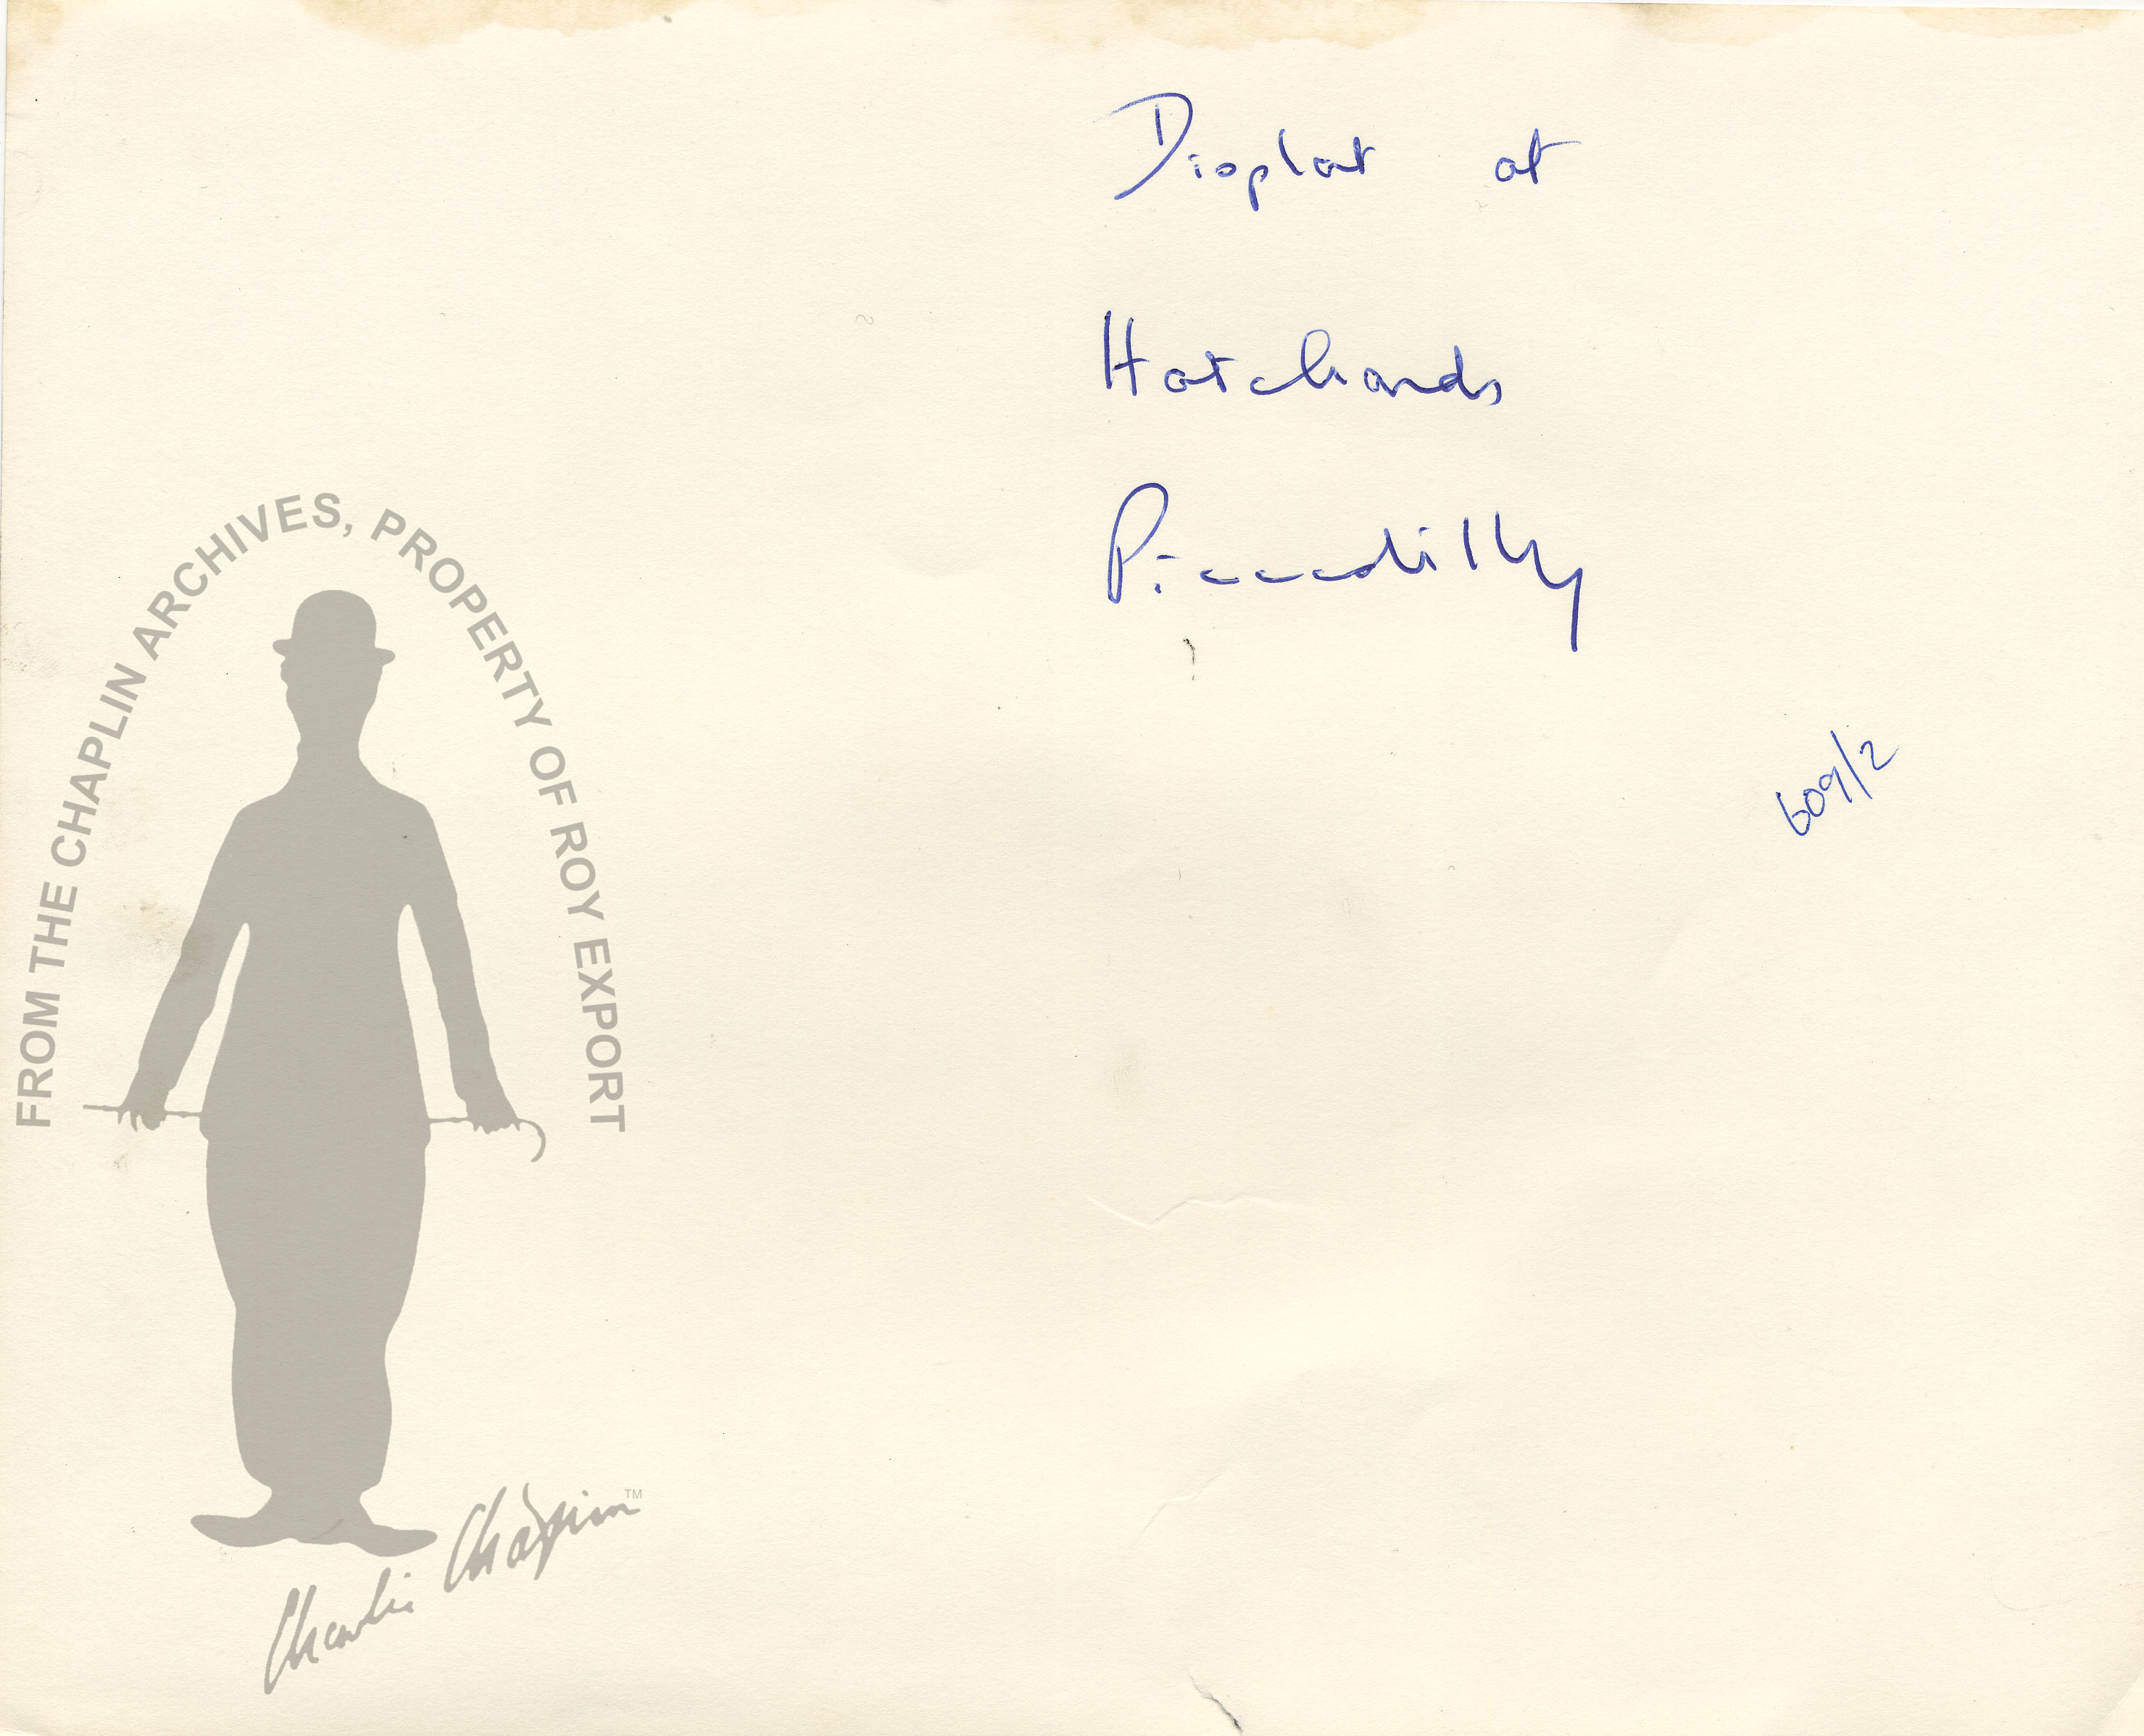 Displat at
Hatchards
Piccadilly
609/2
FROM THE CHAPLIN ARCHIVES, PROPERTY OF ROY EXPORT
Charlie Chaplin TM